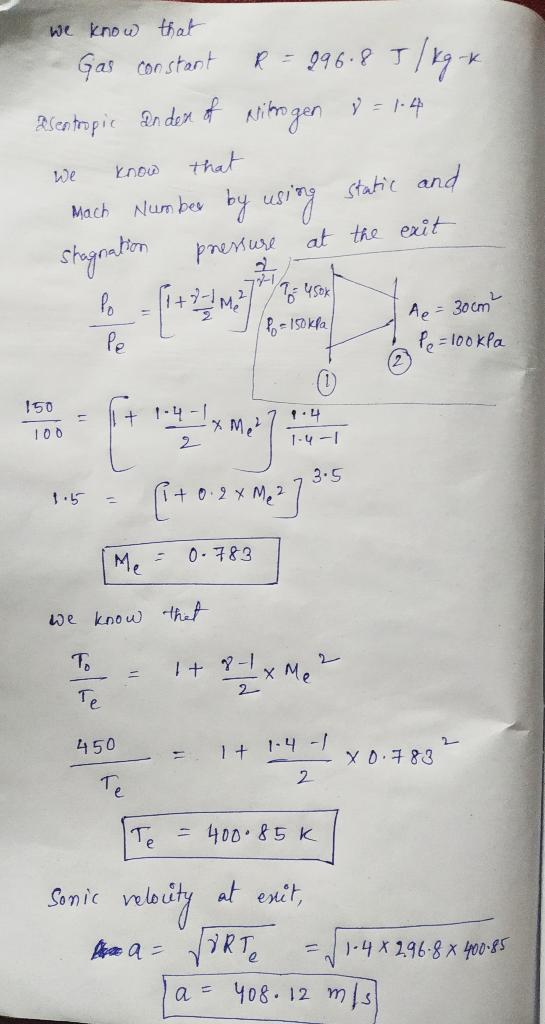 we know that
Gas constant R = 296.8 J/kg-K
Isentropic Index of Nitrogen γ = 1.4
we know that
Mach Number by using static and
stagnation pressure at the exit
P₀/Pe = [1 + γ-1/2 Me²]^γ/γ-1
T₀ = 450K
P₀ = 150KPa
Ae = 30cm²
Pe = 100KPa
① ②
150/100 = [1 + 1.4-1/2 × Me²]^1.4/1.4-1
1.5 = [1 + 0.2 × Me²]^3.5
Me = 0.783
we know that
T₀/Te = 1 + γ-1/2 × Me²
450/Te = 1 + 1.4-1/2 × 0.783²
Te = 400.85 K
Sonic velocity at exit,
a = √γRTe = √1.4 × 296.8 × 400.85
a = 408.12 m/s